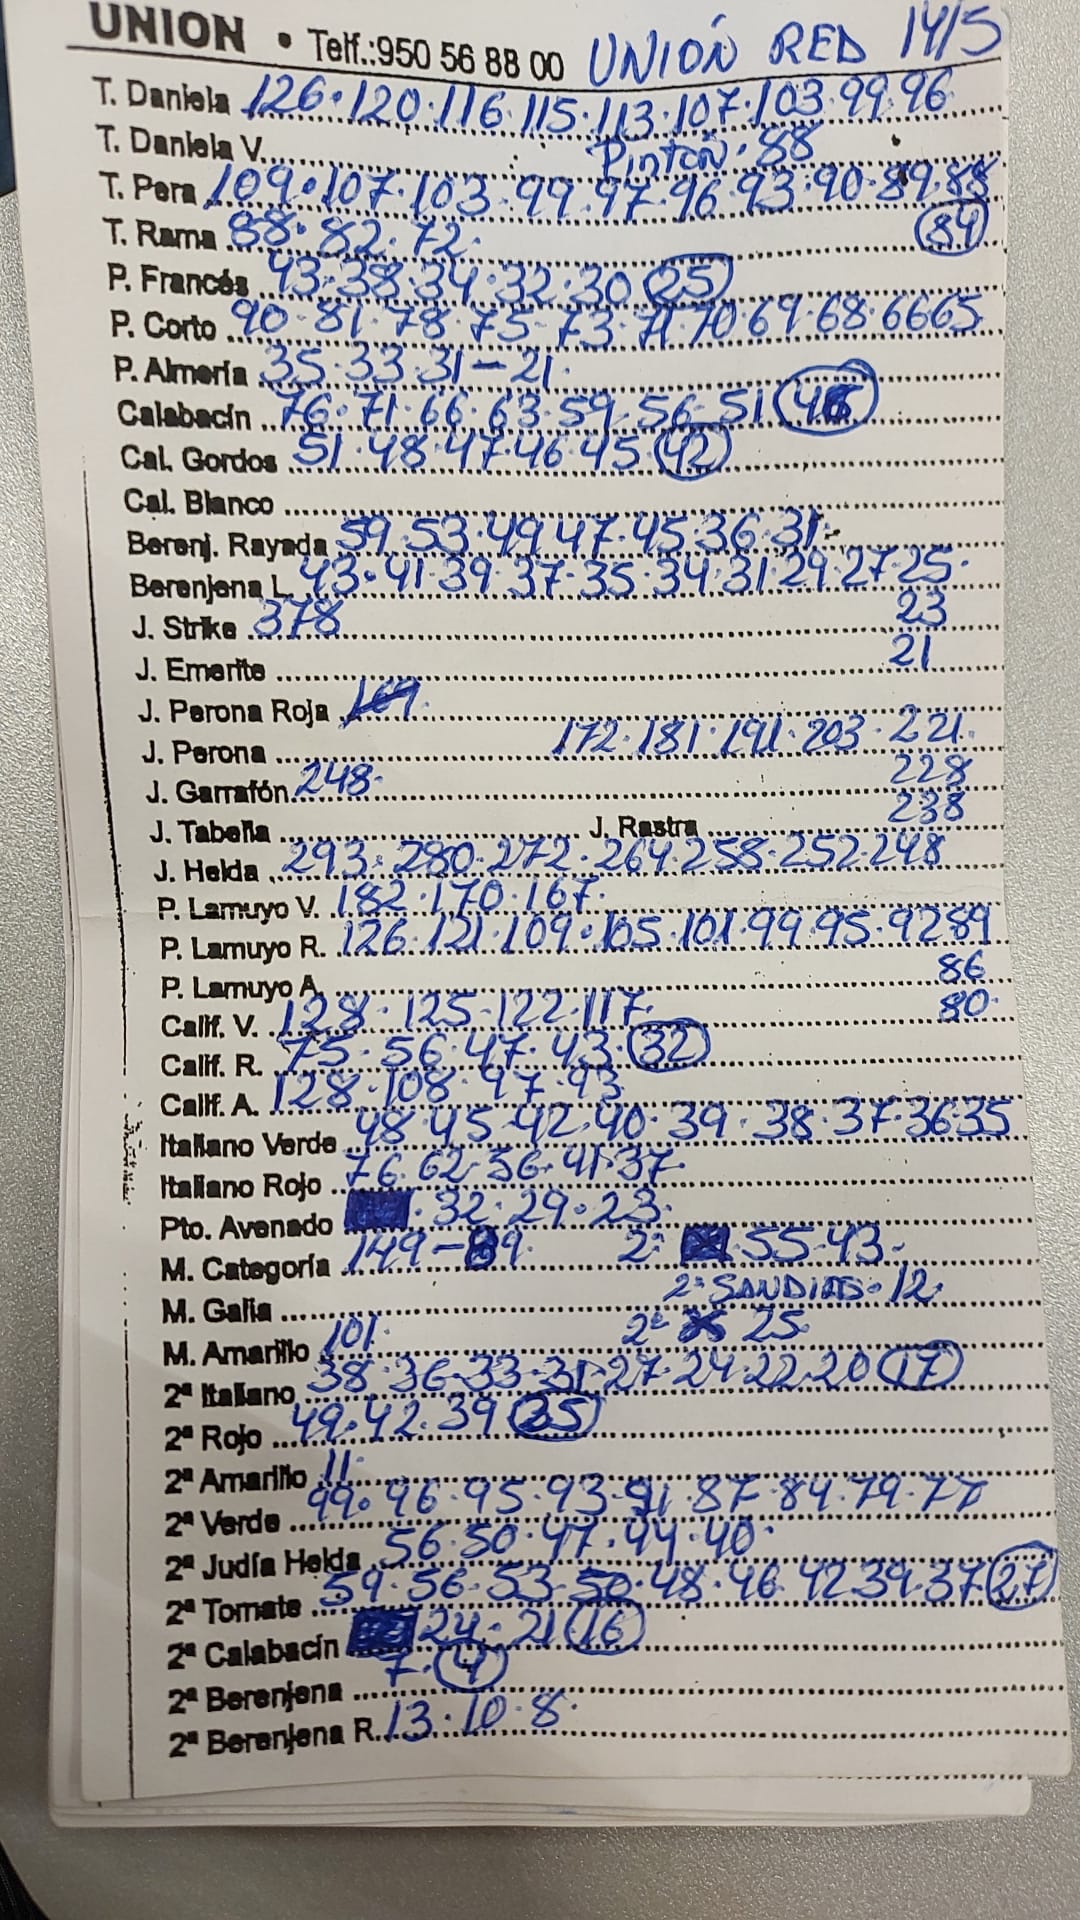 UNION • Telf.:950 56 88 00 UNIÓN RED 14/5
T. Daniela 126·120·116·115·113·107·103·99·96
T. Daniela V. Pintón·88
T. Pera 109·107·103·99·97·96·93·90·89·88
T. Rama 88·82·72· 84
P. Francés 43·38·34·32·30 25
P. Corto 90·81·78·75·73·71·70·69·68·66 65
P. Almería 35·33·31-21·
Calabacín 76·71·66·63·59·56·51
Cal. Gordos 51·48·47·46·45 42
Cal. Blanco
Berenj. Rayada 59·53·49·47·45·36·31·
Berenjena L. 43·41·39·37·35·34·31·29·27·25·
J. Strike 378 23
J. Emerite 21
J. Perona Roja 169·
J. Perona 172·181·191·203·221·
J. Garrafón 248· 228
J. Tabella J. Rastra 238
J. Helda 293·280·272·264·258·252·248
P. Lamuyo V. 182·170·167·
P. Lamuyo R. 126·121·109·105·101·99·95·92·89
P. Lamuyo A. 86
Calif. V. 128·125·122·117· 80·
Calif. R. 75·56·47·43· 32
Calif. A. 128·108·97·93
Italiano Verde 48·45·42·40·39·38·37·36·35
Italiano Rojo 76·62·56·41·37·
Pto. Avenado ·32·29·23·
M. Categoría 149-89· 2ª 55·43·
M. Galia 2ª SANDIAS·12·
M. Amarillo 101· 2ª 25
2ª Italiano 38·36·33·31·27·24·22·20 17
2ª Rojo 49·42·39 35
2ª Amarillo 11·
2ª Verde 99·96·95·93·91·87·84·79·77
2ª Judía Helda 56·50·47·44·40·
2ª Tomate 59·56·53·50·48·46·42·39·37 27
2ª Calabacín 24·21 16
2ª Berenjena 7· 4
2ª Berenjena R. 13·10·8·